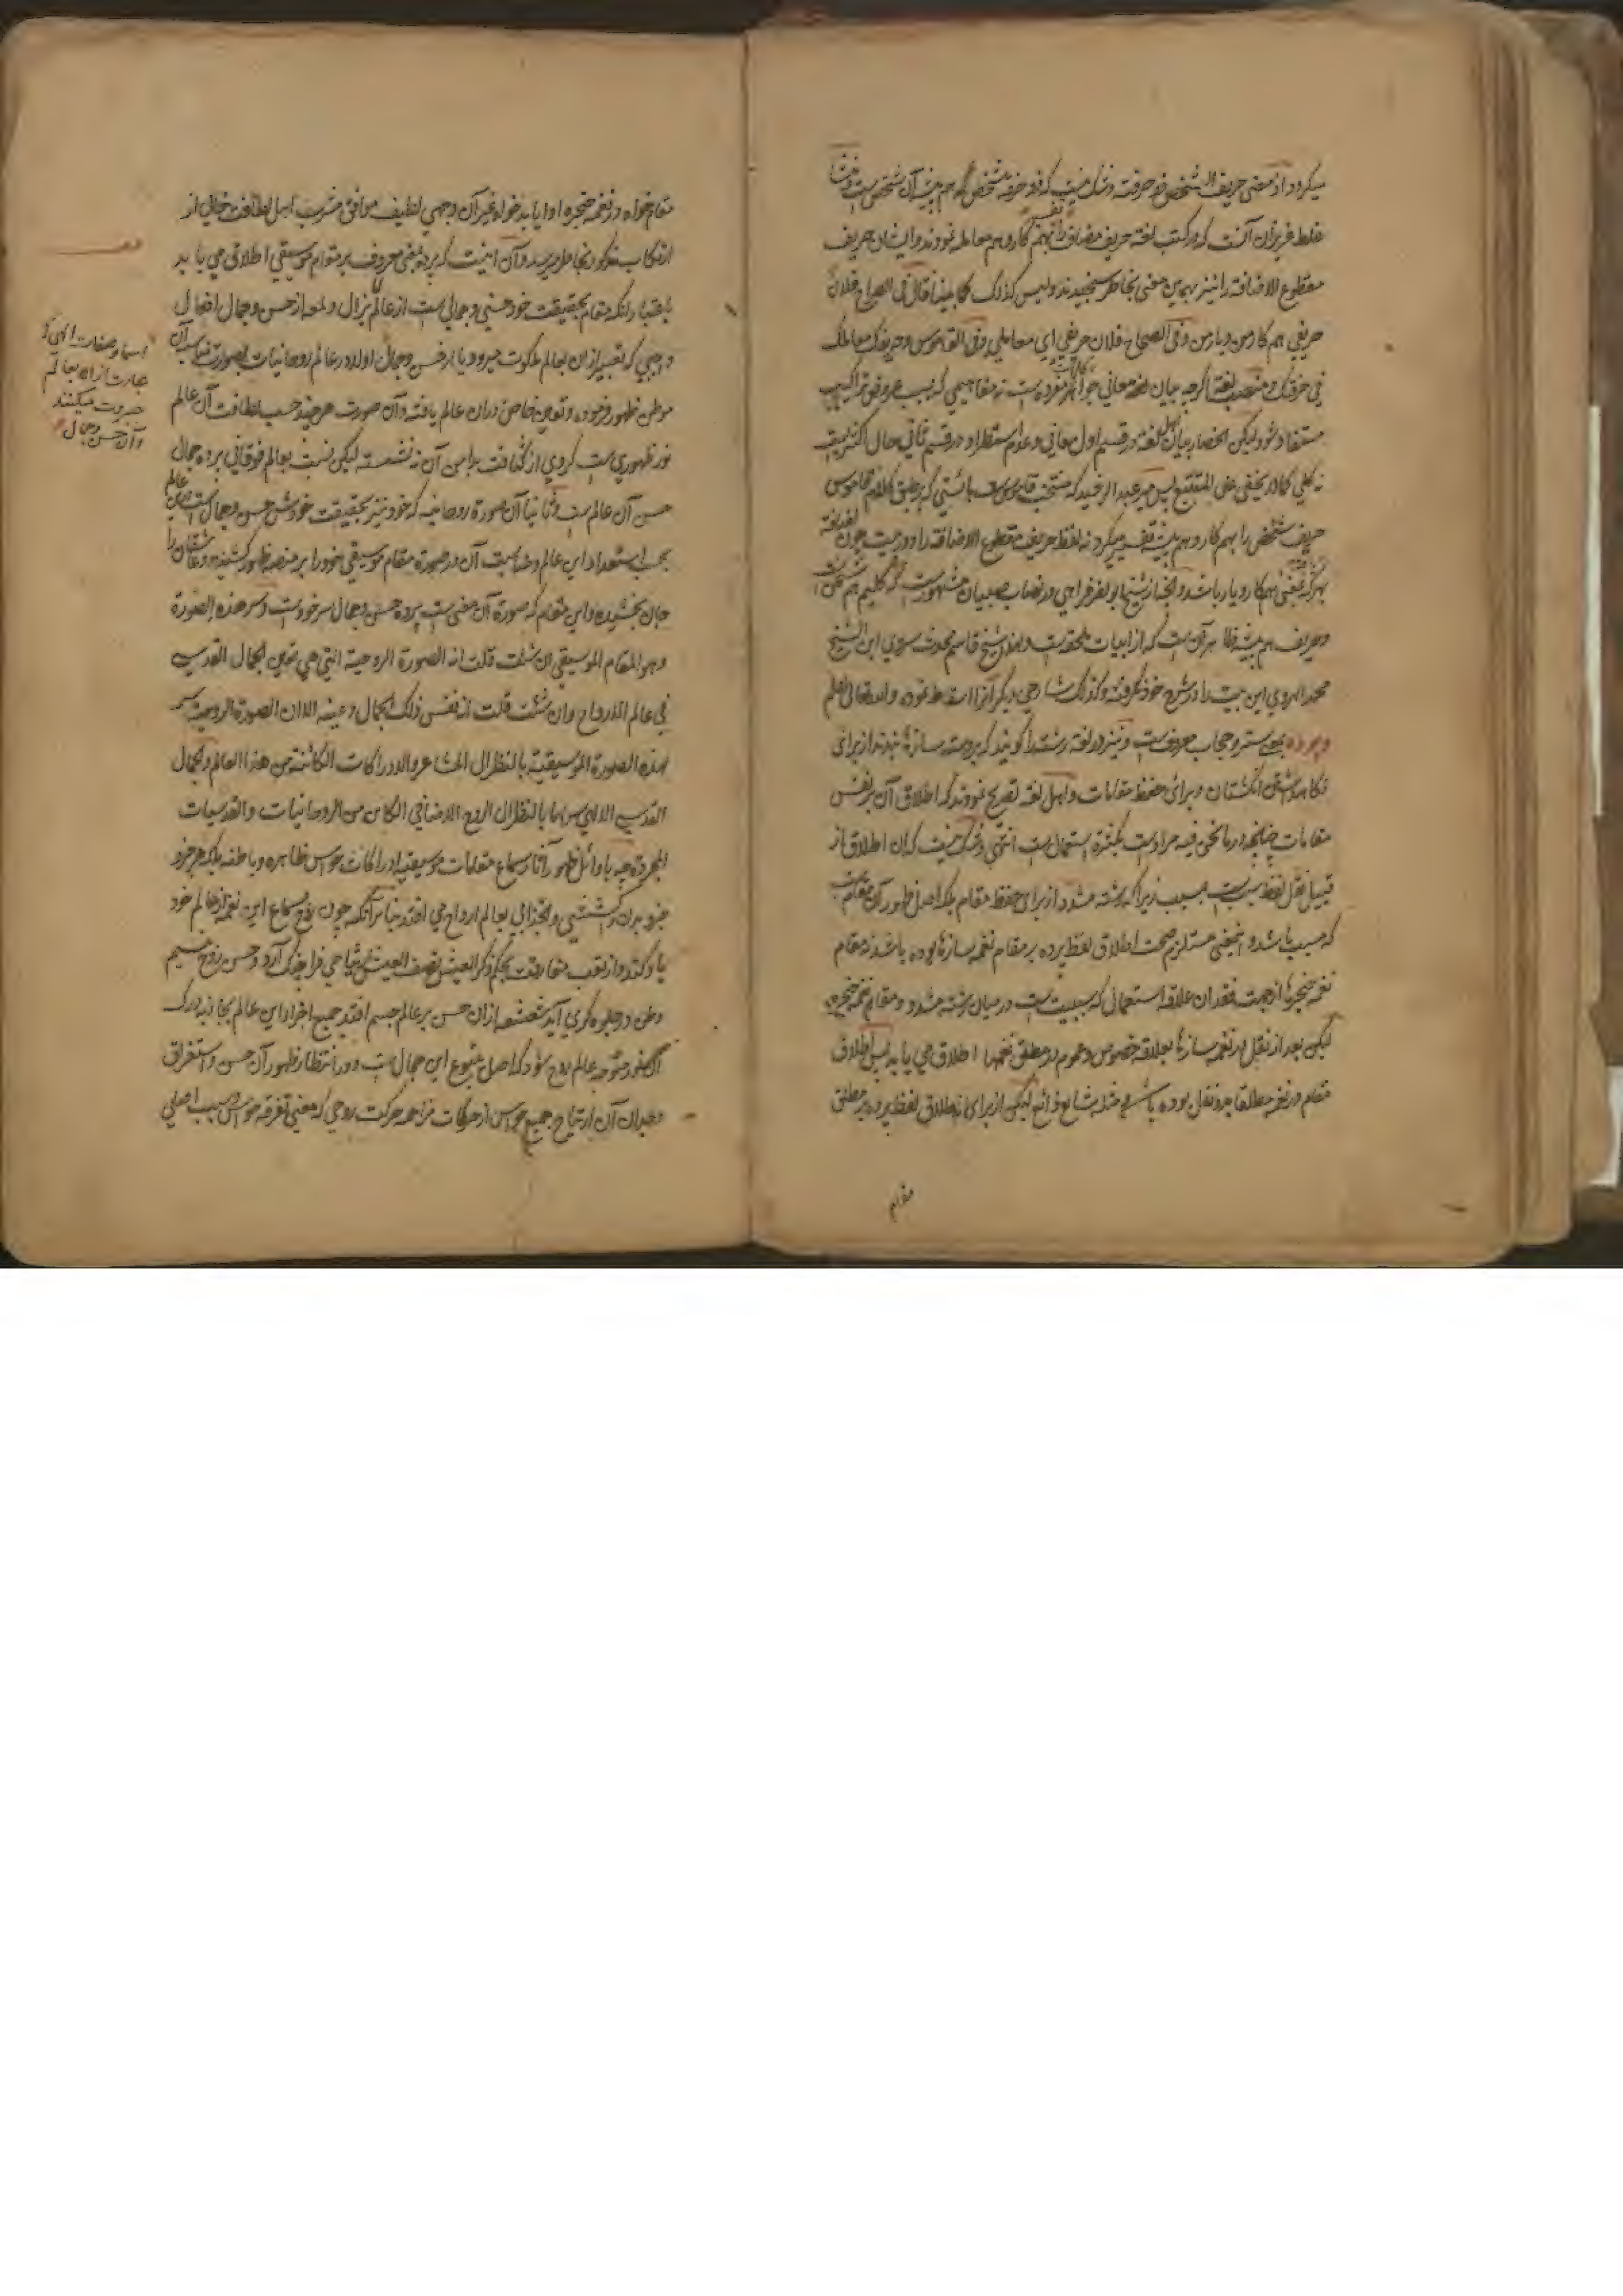 میکردد از معنی حریف الشخص ذو حرفته و شک نیست که ذو حرفه شخص که هم پیشه آن شخص است و منشأ
غلط عزیزان آنست که در کتب لغة حریف مضاف را بهم کار و هم معامله نمودند و ایشان حریف
مقطوع الاضافة را نیز بهمین معنی بخاطر سنجیدند و لیس کذلک کما هنا قال فی الصراح فلان
حریفی هم کار من و یار من و فی الصحاح فلان حریفی ای معاملی و فی القاموس و حریفک معاملک
فی حرفتک و منصب لغة اگرچه بیان معانی جواهر مفرده است نه مفاهیمی که بسبب عروض تراکیب
مستفاد شود لیکن انحصار بیان اهل لغة در قسم اول معانی و عدم استطراد در قسم ثانی حال اکثریست
نه کلی کما لا یخفی علی المتتبع پس میر عبد الرشید که منتخب قاموس است بایستی که بر طبق کلام قاموس
حریف شخص را بهم کار و هم پیشه تفسیر میکرد نه لفظ حریف مقطوع الاضافة را و در بیت چون
بمعنی هم کار و یار باشد و آنچه از شیخ ابو نصر فراهی در نصاب صبیان مشهورست
و حریف هم پیشه ظاهر آنست که از ابیات ملحقه است و لهذا شیخ قاسم محدث سوی ابن الشیخ
محمد الهروی این بیت را در شرح خود نگرفته و کذلک شارحی دیگر آنرا اسقاط نموده و الله تعالی اعلم
و پرده بمعنی ستر و حجاب معروفست و نیز در لغة رشته را گویند که بر دسته سازها بندند از برای
نگاه داشتن انگشتان و برای حفظ مقامات و اهل لغة تصریح نمودند که اطلاق آن بر نفس
مقامات چنانچه در ما نحن فیه مرادست بکثرة استعمال است انتهی و شک نیست که آن اطلاق از
قبیل نقل لفظ سبب است بمسبب زیرا که رشته مشدود از برای حفظ مقام بلکه اصل ظهور آن مقام است
که مسبب باشد و اینمعنی مستلزم صحت اطلاق لفظ پرده بر مقام نغمه سازها بوده باشد نه مقام
نغمه حنجره از جهت فقدان علاقه استعمالی که سببیت است در میان رشته مشدود و مقام نغمه حنجره
لیکن بعد از نقل در نغمه سازها بعلاقه خصوص و عموم در مطلق نغمها اطلاق می یابد پس اطلاق
مقام در نغمه مطلقا بدو نقل بوده باشد و مثله شایع ذائع لیکن از برای اطلاق لفظ پرده بر مطلق
مقام
مقام خواه در نغمه حنجره ادا یابد خواه غیر آن وجهی لطیف موافق مشرب اهل لطافت خالی از
ارتکاب مذکور بخاطر میرسد و آن اینست که پرده بمعنی معروف بر مقام موسیقی اطلاق می یابد
باعتبار آنکه مقام بحقیقت خود حسنی و جمالی است از عالم لا یزال و لمعه از حسن و جمال افعال
واجبی که تعبیر از آن بعالم ملکوت میرود یا از حسن و جمال اولا در عالم روحانیات بصورت مناسب آن
موطن ظهور فرموده و تعین خاص در آن عالم یافته و آن صورت هر چند حسب لطافت آن عالم
نور ظهوری است کردی از کثافت بدامن آن نه نشسته لیکن نسبت بعالم فوقانی پرده جمال
حسن آن عالم است و ثانیا آن صورة روحانیه که خود نیز بحقیقت خودش حسن و جمال است درین عالم
بحسب استعداد این عالم و مناسبت آن در صورة مقام موسیقی خود را بر منصه ظهور کشیده و عاشقان را
جان بخشیده و این مقام که صورة آن معنی است پرده حسن و جمال سر خودست و سر هذه الصورة
و هو المقام الموسیقی ان شئت قلت انه الصورة الروحیة التی هی تعین الجمال القدسی
فی عالم الارواح و ان شئت قلت انه نفس ذلک الجمال و عینه الا ان الصورة الروحیة سر
لهذه الصورة الموسیقیة بالنظر الی المشاعر و الادراکات الکائنة من هذا العالم و الجمال
القدسی الالهی سر لها بالنظر الی الروح الاضافی الکامن من الروحانیات و القدسیات
المجردة چه باوائل ظهور آثار سماع مقامات موسیقیه ادراکات حواس ظاهره و باطنه بلکه هر جزو
جزو بدن را کششی و انجذابی بعالم ارواح می افتد بنا بر آنکه چون روح بسماع این نغمه از عالم خود
یاد کند و از تعب مفارقت بحکم ذکر العیش نصف العیش ارتیاحی فرا چنگ آرد و حسن روح بنسیم
وطن در جلوه گری آید شعشعه از آن حسن بر عالم جسم افتد جمیع اجزاء این عالم بجاذبه ادراک
آن حضور متوجه عالم روح شود که اصل متبوع این جمال است و در انتظار ظهور آن حسن و استغراق
وجدان آن ارتیاح جمیع حواس از حرکات مزاحمه حرکت روحی که معنی تفرقه حواس و سبب اصلی
اسما و صفات الهی که
عبارت از آن بعالم
جبروت میکنند
و آن حسن و جمال